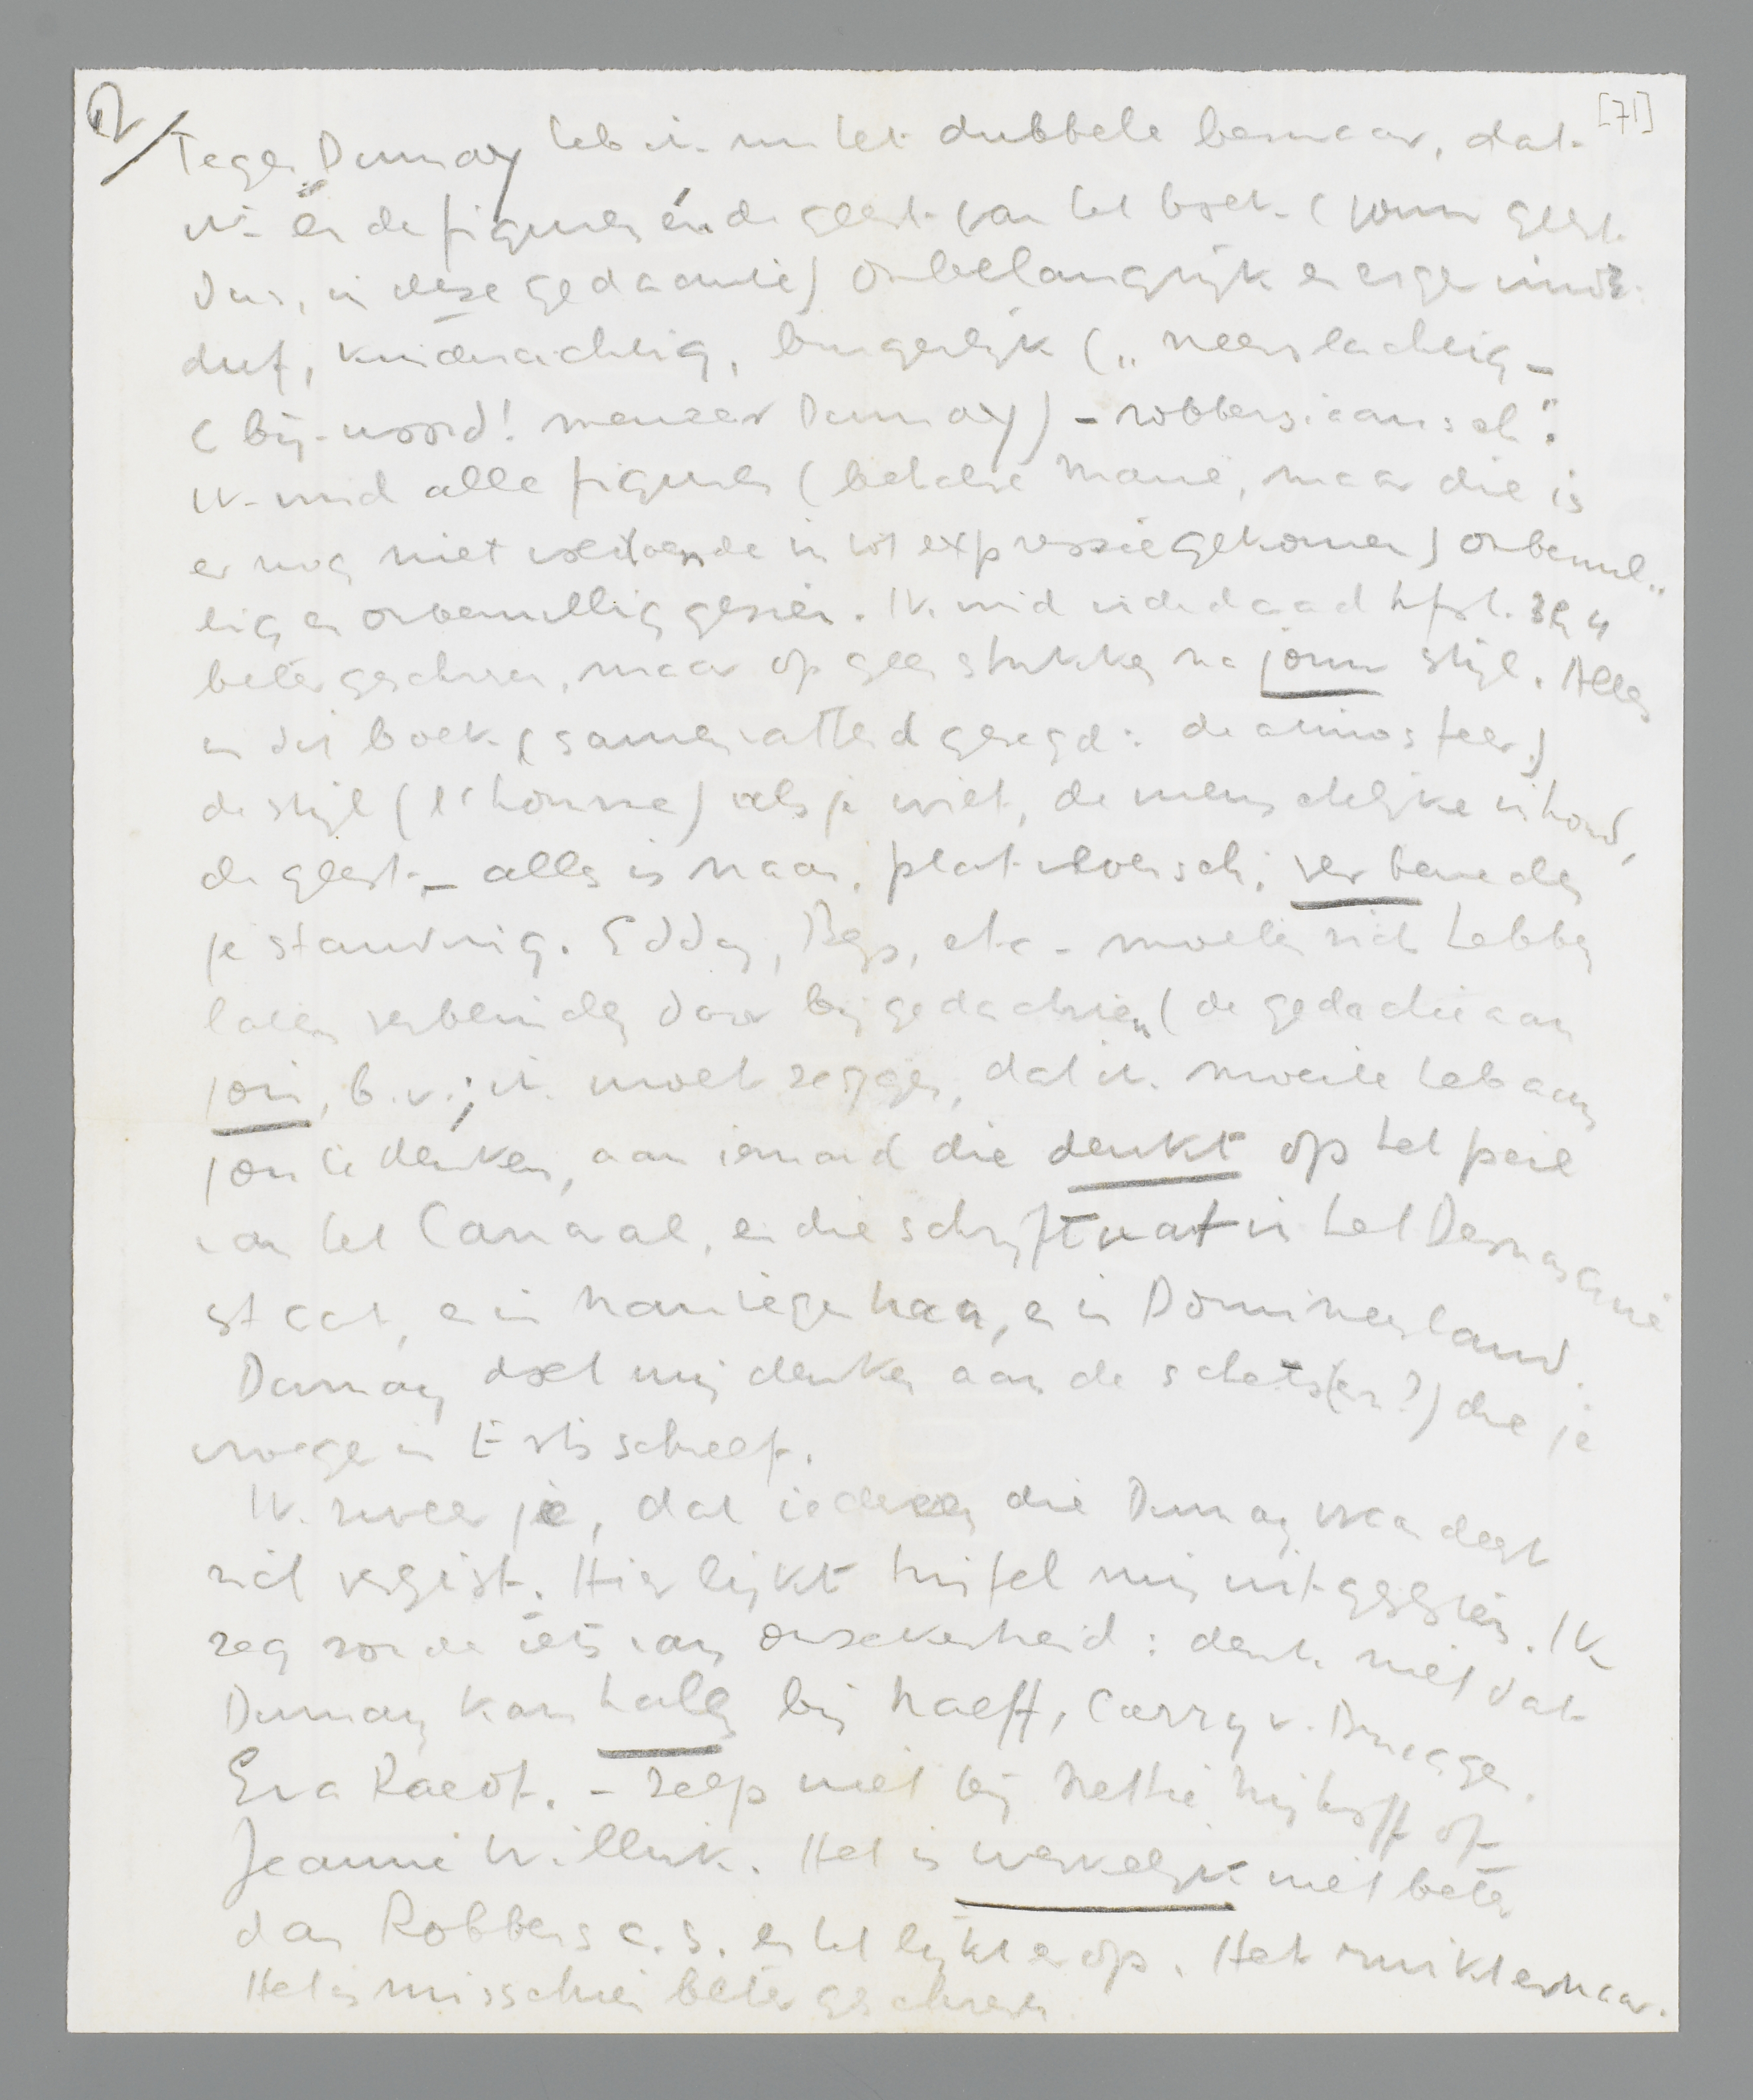 2/
[71]
Tegen Dumay heb ik nu het dubbele bezwaar, dat
ik èn de figuren èn de geest van het boek (jouw geest
dus, in deze gedaante) onbelangrijk en erger vind:
duf, kinderachtig, burgerlijk („neerslachtig –
(bij-woord! meneer Dumay) – robbersiaansch".
Ik vind alle figuren (behalve Marie, maar die is
er nog niet voldoende in tot expressie gekomen) onbenul„
lig en onbenullig gezien. Ik vind inderdaad hfst. 3 en 4
beter geschreven, maar op geen stukken na jouw stijl. Alles
in dit boek (samenvattend gezegd: de atmosfeer)
de stijl (l'homme) als je wilt, de menschelijke inhoud,
de geest – alles is naar, platvloersch, ver beneden
je standing. Eddy, Bep, etc. moeten zich hebben
laten verblinden door bijgedachten (de gedachte aan
jou, b.v.; ik moet zeggen, dat ik moeite heb aan
jou te denken, aan iemand die denkt op het peil
van het Carnaval, en die schrijft wat in het Démasqué
staat, en in Man tegen Man, en in Domineesland.
Dumay doet mij denken aan de schets(en?) die je
vroeger in Erts schreef.
Ik zweer je, dat iedereen die Dumay verdedigt
zich vergist. Hier lijkt twijfel mij uitgesloten. Ik
zeg zonder iets van onzekerheid: denk niet dat
Dumay kan halen bij Naeff, Carry v. Bruggen,
Eva Raedt. – zelfs niet bij Nettie Nijhoff of
Jeanne Willink. Het is werkelijk niet beter
dan Robbers c.s. en het lijkt er op. Het ruikt ernaar.
Het is misschien beter geschreven